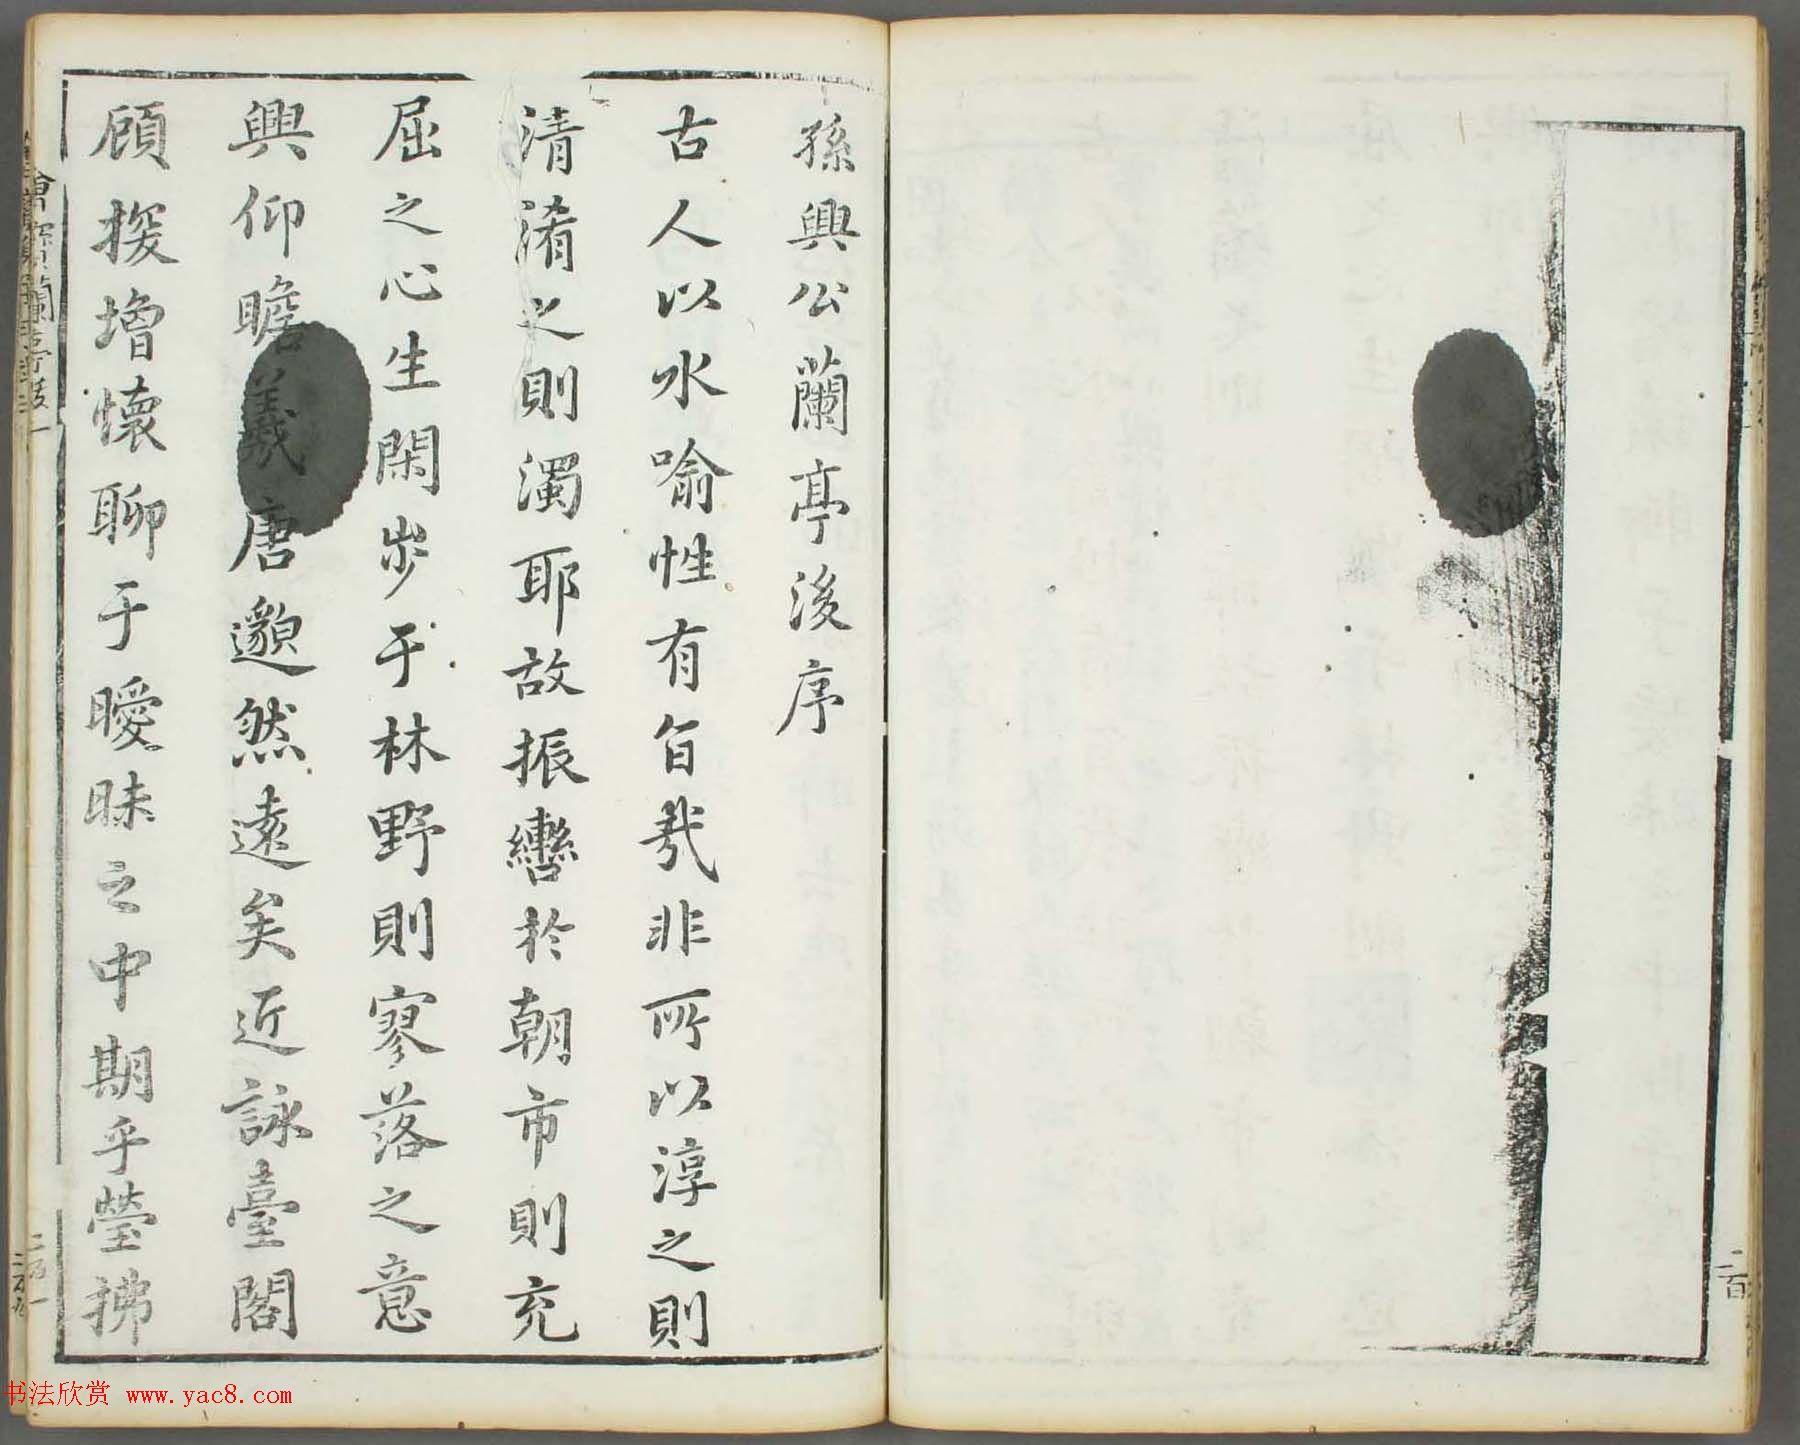 孫興公蘭亭後序
古人以水喻性有旨哉非所以淳之則
清淆之則濁耶故振轡於朝市則充
屈之心生閑步于林野則寥落之意
興仰瞻羲唐邈然遠矣近詠臺閣
顧探增懷聊于曖昧之中期乎瑩拂
二百
二百一
书法欣赏 www.yac8.com